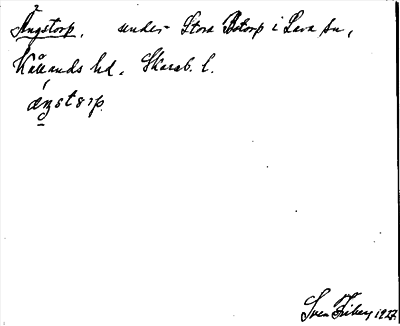 Ängstorp, under Stora Bstorp i Lava sn,
Kållands hd. Skarab. l.
äŋstərp.
Sven Friberg 1927.